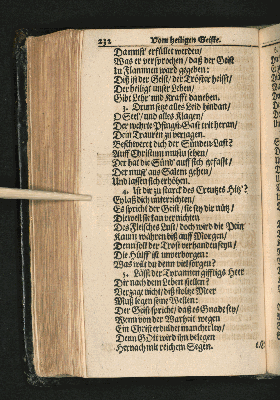 232 Vom heiligen Geiste.
Damnit erfüllet werden/
Was er versprochen/ daß der Geist
In Flammen ward gegeben:
Diß ist der Geist/ der Tröster heisst/
Der heiligt unser Leben/
Gibt Lehr und Krafft daneben.
3. Drum setze alles Leid hindan/
O Seel/ und alles Klagen/
Der wehrte Pfingst-Gast tritt heran/
Dein Trauren zu verjagen.
Beschweret dich der Sünden-Last?
Auff Christum mustu sehen/
Der hat die Sünd' auff sich gefasst/
Der muß aus Salem gehen/
Und lassen sich erhöhen.
4. Ist dir zu starck des Creutzes Hitz'?
Ey laß dich unterrichten/
Es spricht der Geist/ sie sey dir nütz/
Dieweil sie kan vernichten
Des Fleisches Lust/ doch wird die Pein
Kaum währen biß auff Morgen/
Denn soll der Trost verhanden seyn/
Die Hülff' ist unverborgen:
Was wilt du denn viel sorgen?
5. Lässt der Tyrannen grimmigs Heer
Dir nach dem Leben stellen?
Verzage nicht/ diß stoltze Meer
Muß legen seine Wellen:
Der Geist spricht/ daß es Gnade sey/
Wenn von der Warheit wegen
Ein Christ erduldet mancherley/
Denn GOtt wird ihn belegen
Hernach mit reichem Segen.